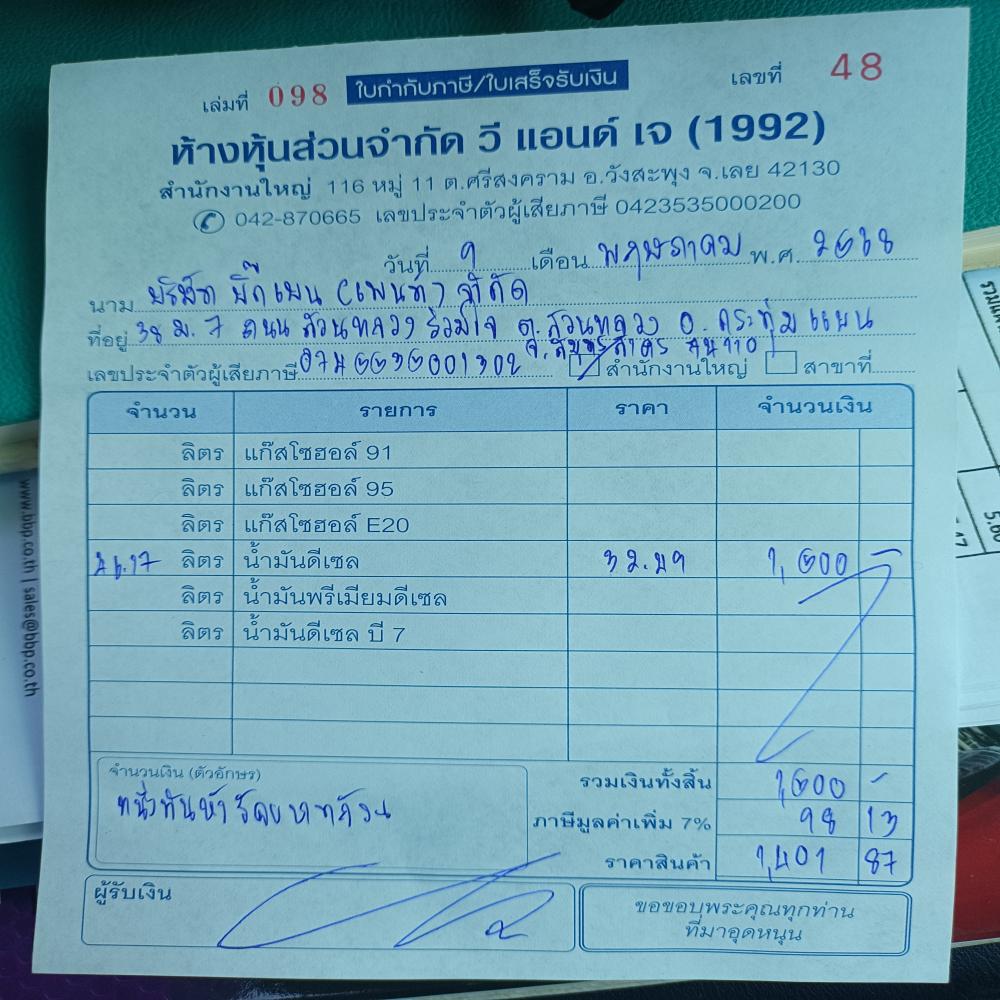 เล่มที่ 098 ใบกำกับภาษี/ใบเสร็จรับเงิน เลขที่ 48
ห้างหุ้นส่วนจำกัด วี แอนด์ เจ (1992)
สำนักงานใหญ่ 116 หมู่ 11 ต.ศรีสงคราม อ.วังสะพุง จ.เลย 42130
042-870665 เลขประจำตัวผู้เสียภาษี 0423535000200
วันที่ 9 เดือน พฤษภาคม พ.ศ. 2568
นาม บริษัท บิ๊กแพน (เพนท์) จำกัด
ที่อยู่ 38 ม. 7 ถนน สวนหลวง ร่วมใจ ต. สวนหลวง อ. กระทุ่มแบน
จ. สมุทรสาคร 74110
เลขประจำตัวผู้เสียภาษี สำนักงานใหญ่ สาขาที่
จำนวน รายการ ราคา จำนวนเงิน
ลิตร แก๊สโซฮอล์ 91
ลิตร แก๊สโซฮอล์ 95
ลิตร แก๊สโซฮอล์ E20
46.17 ลิตร น้ำมันดีเซล 32.49 1,500 -
ลิตร น้ำมันพรีเมียมดีเซล
ลิตร น้ำมันดีเซล บี 7
จำนวนเงิน (ตัวอักษร) รวมเงินทั้งสิ้น 1,500 -
หนึ่งพันห้าร้อยบาทถ้วน ภาษีมูลค่าเพิ่ม 7% 98 13
ราคาสินค้า 1,401 87
ผู้รับเงิน
ขอขอบพระคุณทุกท่าน
ที่มาอุดหนุน
www.bbp.co.th | sales@bbp.co.th